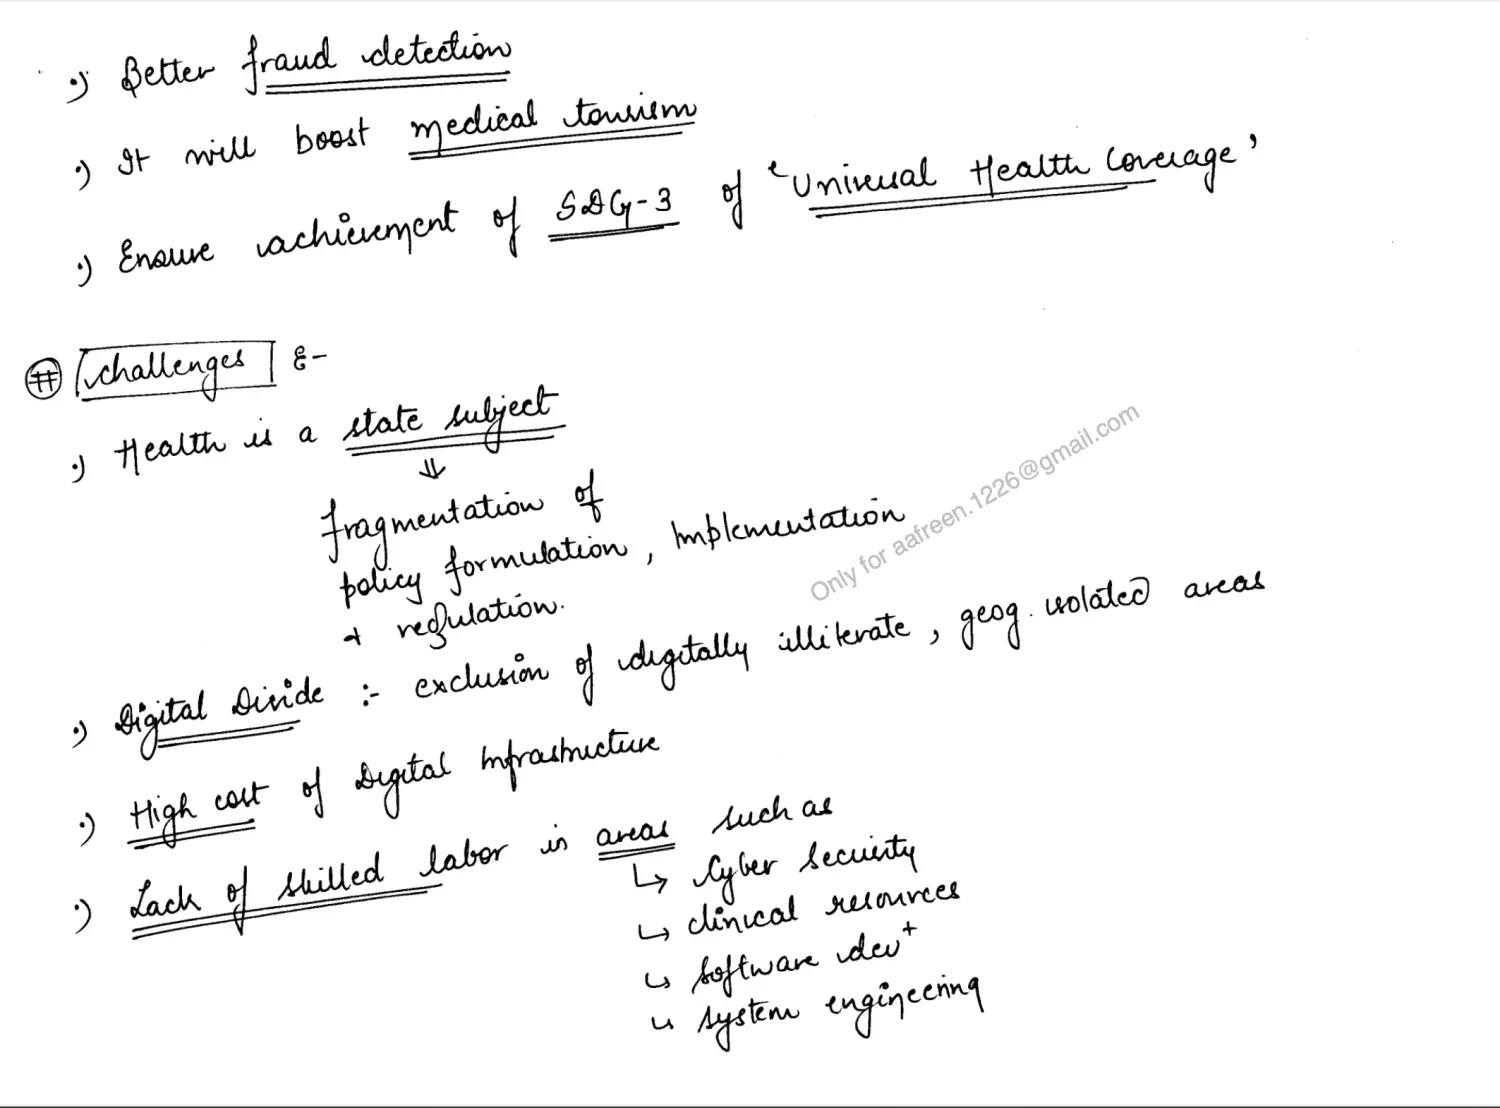 ·) Better fraud detection
·) It will boost medical tourism
·) Ensure achievement of SDG-3 of 'Universal Health Coverage'
# Challenges :-
·) Health is a state subject
⇓
fragmentation of
policy formulation, Implementation
+ regulation.
Only for aafreen.1226@gmail.com
·) Digital Divide :- exclusion of digitally illiterate, geog. isolated areas
·) High cost of Digital Infrastructure
·) Lack of skilled labor in areas such as
↳ Cyber Security
↳ clinical resources
↳ Software dev+
↳ System engineering